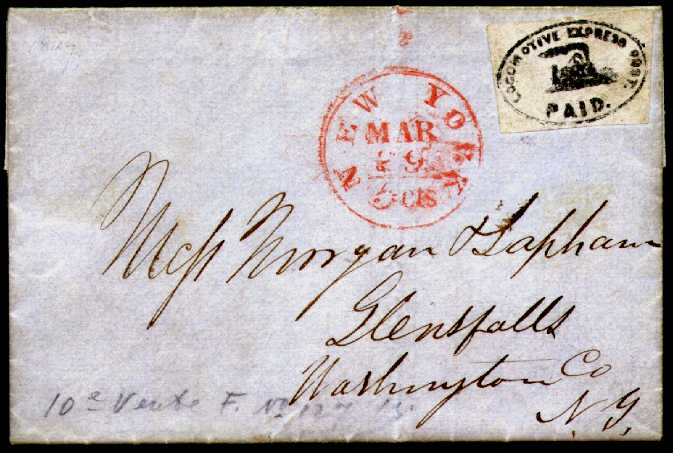 LOCOMOTIVE EXPRESS POST.
PAID.
NEW YORK
MAR
29
5 CTS
Mess Morgan & Lapham
Glensfalls
Washington Co
N.Y.
10e Vente F. No